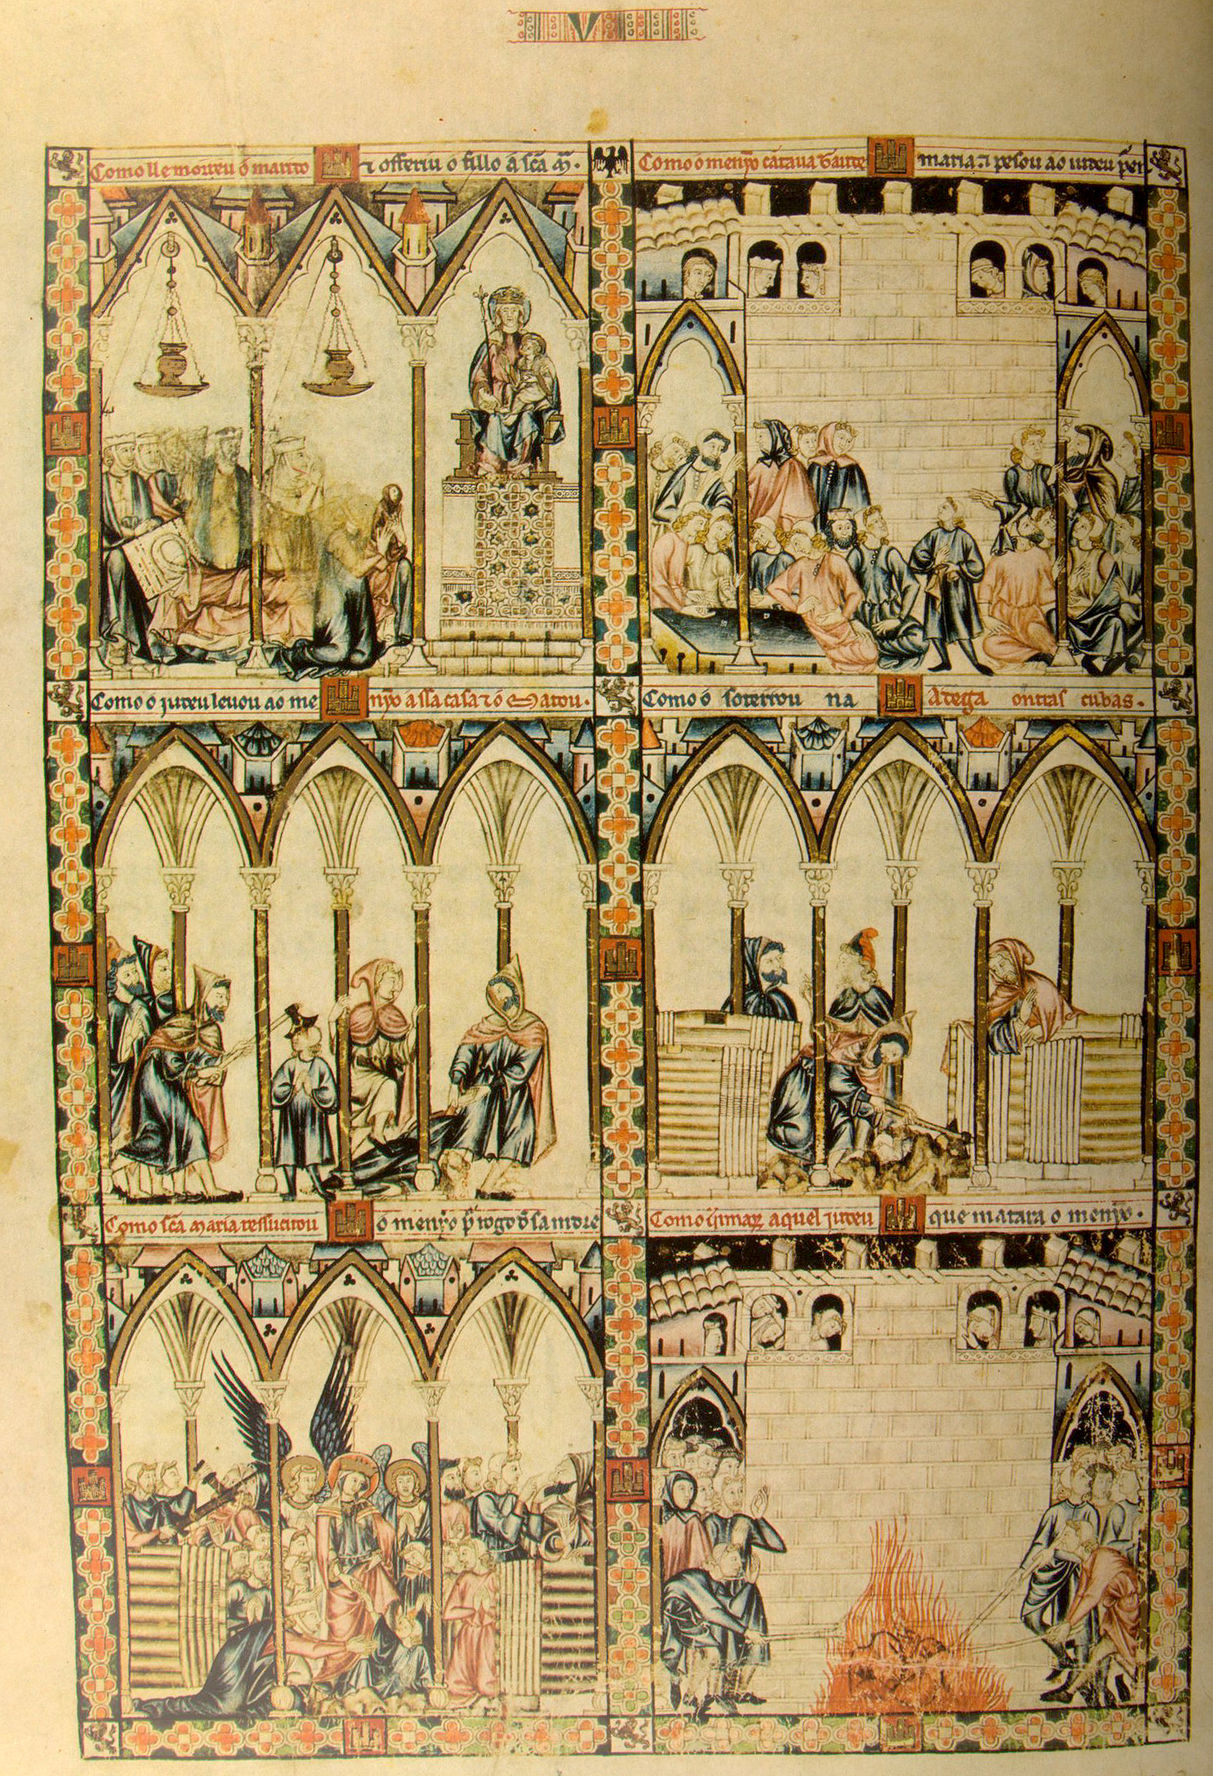 VI
Como lle morreu o marito
⁊ offeriu o fillo a sc̃a m̃.
Como o menỹo cãtaua Gaute
maria ⁊ pesou ao iudeu
Como o judeu leuou ao me
nỹo a ssa casa ⁊ o Matou.
Como o soterrou na
Adega ontras cubas.
Como sc̃a Maria ressucitou
o menỹo p̃ rogo d̃ sa madre
Como aquel judeu
que matara o menỹo.